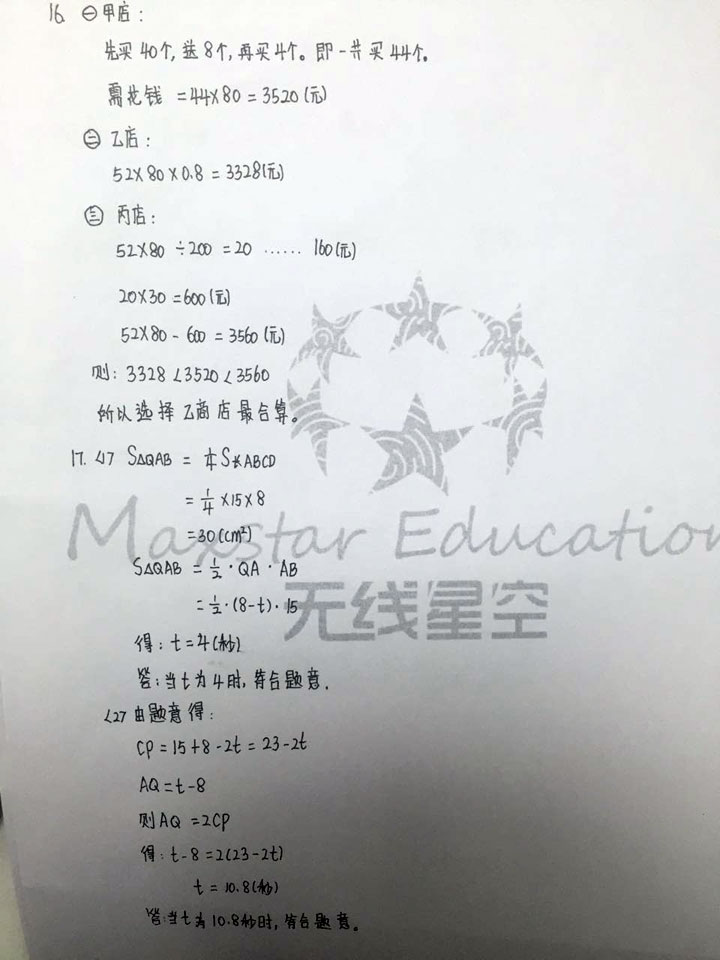 16 ㊀甲店：
先买40个，送8个，再买4个。即一共买44个。
需花钱 =44×80=3520(元)
㊁ 乙店：
52×80×0.8=3328(元)
㊂ 丙店：
52×80÷200=20 …… 160(元)
20×30=600(元)
52×80-600=3560(元)
则：3328<3520<3560
所以选择乙商店最合算。
17. <1> S△QAB = 1/4 S长ABCD
= 1/4 ×15×8
=30(cm²)
Maxstar Education
S△QAB = 1/2 · QA · AB
= 1/2 · (8-t) · 15
无线星空
得：t=4(秒)
答：当t为4时，符合题意.
<2> 由题意得：
CP=15+8-2t=23-2t
AQ=t-8
则AQ=2CP
得：t-8=2(23-2t)
t=10.8(秒)
答：当t为10.8秒时，符合题意。